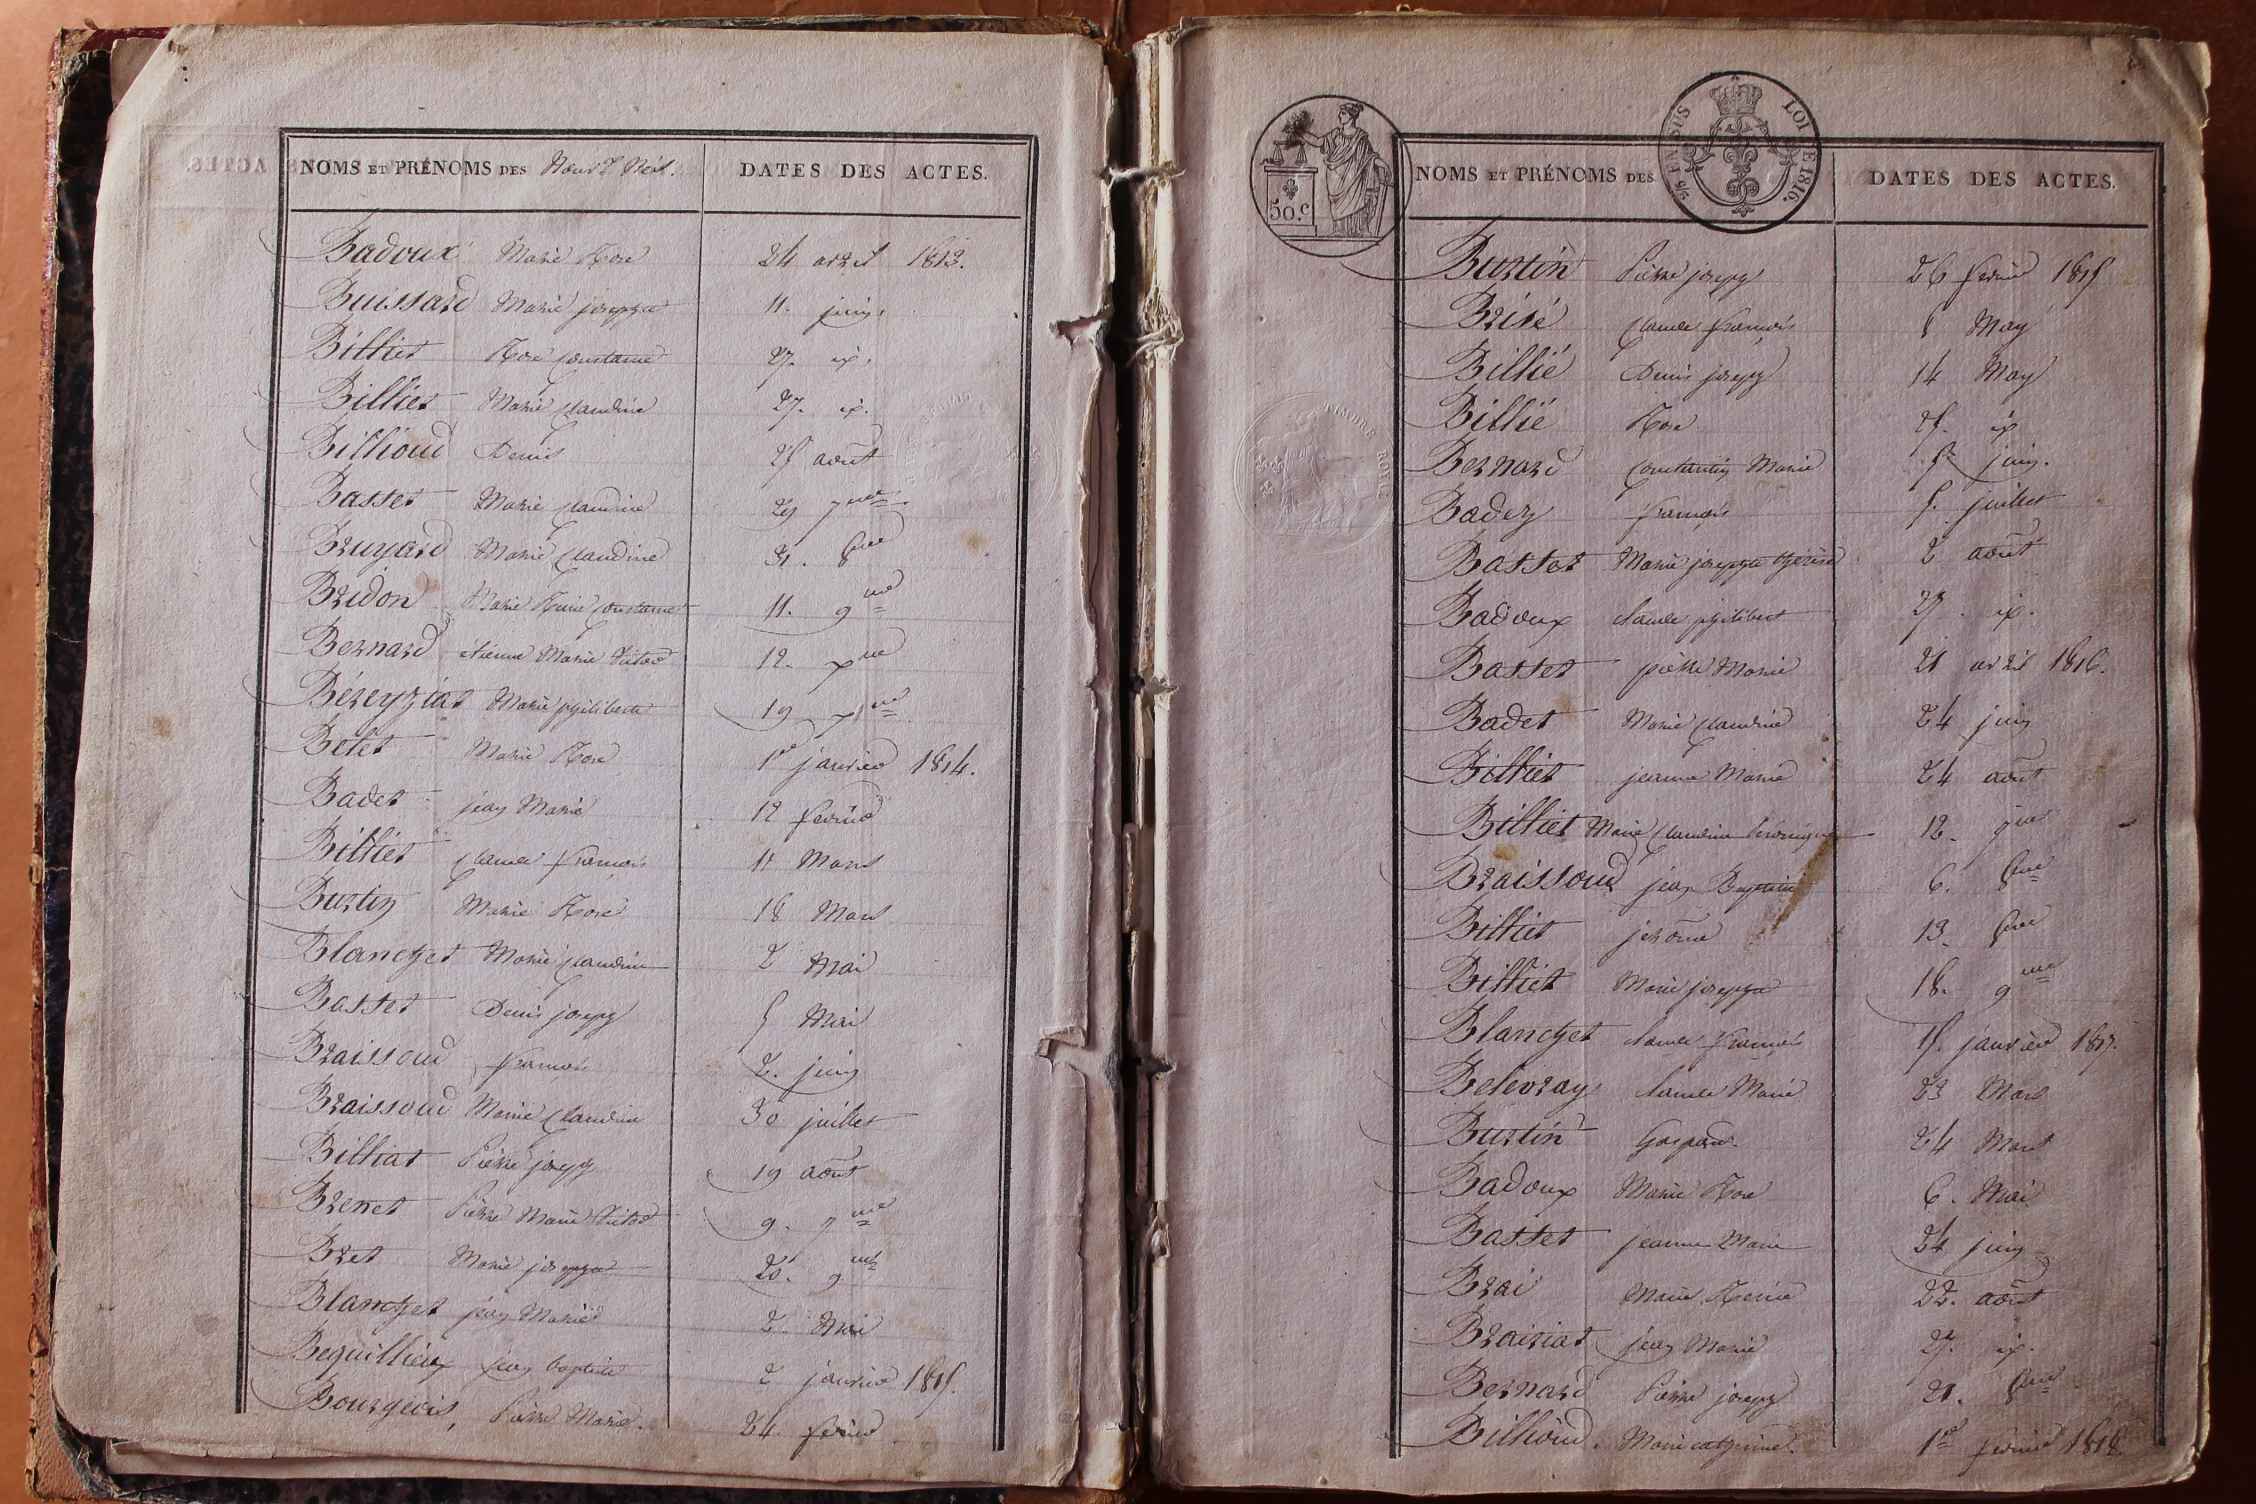 NOMS ET PRÉNOMS DES Nouv.x Nés. DATES DES ACTES.
Badoux Marie Rose 24 avril 1813.
Buissard Marie josephte 11. juin.
Billiet Rose Constance 27. id.
Billiet Marie Claudine 27. id.
Billioud Denis 25 août
Basset Marie Claudine 29 7bre
Bruyard Marie Claudine 31. 8bre
Bridon Marie Reine Constance 11. 9bre
Bernard étienne Marie Victor 12. xbre
Béreyziat Marie philiberte 19 xbre
Belet Marie Rose 1er janvier 1814.
Badet jean Marie 12 février
Billiet Claude françois 11 Mars
Burtin Marie Rose 18 Mars
Blanchet Marie Claudine 2 Mai
Basset Denis joseph 5 Mai
Braissoud françois 2. juin
Braissoud Marie Claudine 30 juillet
Billiat Pierre joseph 19 août
Brenet Pierre Marie Victor 9. 7bre
Bret Marie josephte 20. 9bre
Blanchet jean Marie 2. Mai
Bequillieux jean baptiste 2 janvier 1815.
Bourgeois, Pierre Marie. 24. février
50.c
LOI DE 1816.
NOMS ET PRÉNOMS DES DATES DES ACTES.
TIMBRE ROYAL
Burtin Pierre joseph 26 février 1815
Brisé Claude françois 8 May
Billié Denis joseph 14 May
Billié Rose 25. id
Bernard Constantin Marie juin.
Badez françois 5. juillet
Basset Marie josephte thérèse 2 août
Badoux claude philibert 27. id.
Basset pierre Marie 21 avril 1816.
Badet Marie Claudine 24 juin
Billiet jeanne Marie 24 août
Billiet Marie Claudine Véronique 12. 7bre
Braissoud jean Baptiste 6. 8bre
Billiet jérôme 13. 8bre
Billiet Marie josephte 18. 9bre
Blanchet claude françois 15. janvier 1817.
Belevray claude Marie 23 Mars
Burtin Gaspard. 24 Mars
Badoux Marie Rose 6. Mai
Basset jeanne Marie 24 juin
Brai Marie Reine 22. août
Braisiat jean Marie 27. id.
Bernard Pierre joseph 21. 8bre
Billioud. Marie catherine. 1er février 1818.